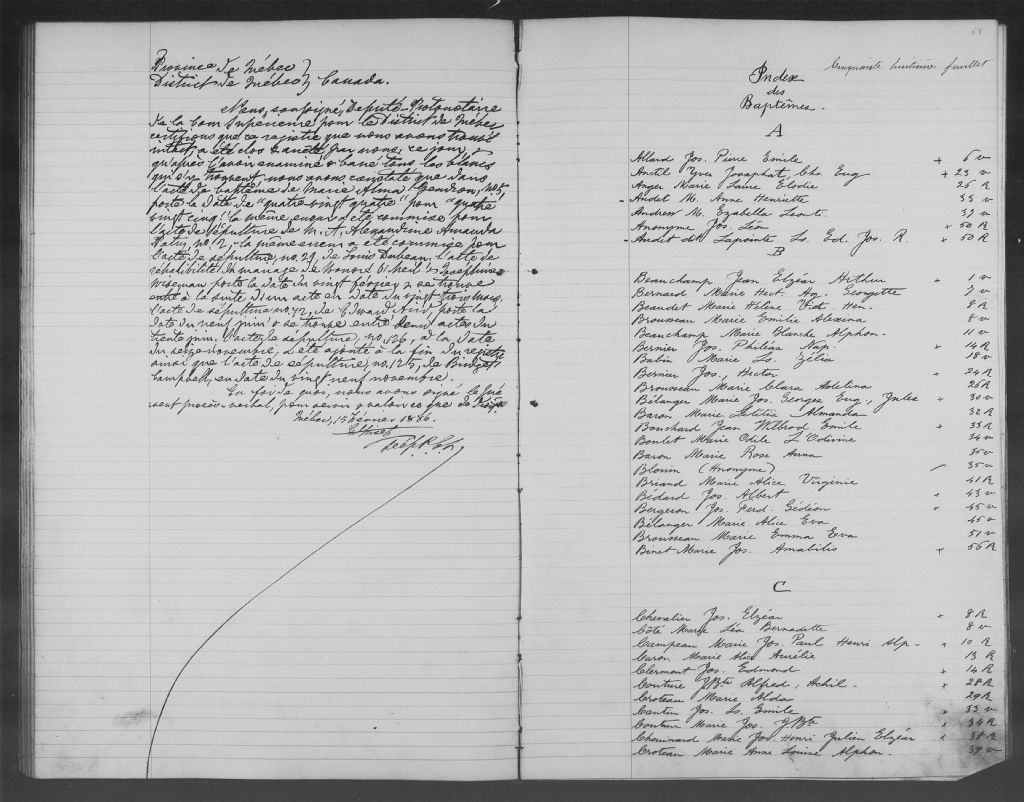 Province de Québec }
District de Québec } Canada.
Nous, soussigné, Député Protonotaire
de la Cour Supérieure pour le District de Québec
certifions que ce registre que nous avons trouvé
intact, a été clos & arrêté par nous, ce jour,
qu'après l'avoir examiné & barré tous les blancs
qui s'y trouvent nous avons constaté que dans
l'acte de baptême de Marie Alma Gendron, no. 5,
porte la date de "quatre vingt quatre" pour "quatre
vingt cinq". la même erreur a été commise pour
l'acte de sépulture de M. A. Alexandrine Amanda
Patry, no. 12, - la même erreur a été commise pour
l'acte de sépulture, no. 29, de Louis Dubeau. L'acte de
réhabilité de mariage de Honoré & Joséphine
Wiseman porte la date du vingt février & se trouve
entré à la suite d'un acte en date du vingt trois mars.
L'acte de sépulture no. 42, de Edward porte la
date du neuf juin & se trouve entré deux actes du
trente juin. L'acte de sépulture, no. 126, à la date
du seize novembre, a été ajouté à la fin du registre
ainsi que l'acte de sépulture, no. 125, de Bridget
Campbell, en date du vingt neuf novembre.
En foi de quoi, nous avons signé le pré-
sent procès-verbal, pour servir & valoir ce que de droit
Québec, 15 Février 1886.
Dep. P. C. S.
Cinquante huitième feuillet
Index
des
Baptêmes.
A
Allard Jos. Pierre Emile + 6 v
Anctil Yves Josaphat, Chs Eug + 23 v
Anger Marie Laure Elodie 26 R
- Audet M. Anne Henriette 33 v
Andrew M. Ezabella Leonti. 37 v
Anonyme Jos. Léon + 50 R
- Audet dit Lapointe Ls. Ed. Jos. R. + 50 R
B
Beauchamp Jean Elzéar Arthur + 1 v
Bernard Marie Hect. Ag. Georgette 7 v
Beaudet Marie Hélène Vict. Hen. 8 R
Brousseau Marie Emilie Alexina 8 v
Beauchamp Marie Blanche Alphon. 11 v
Bernier Jos. Philéas Nap. + 14 R
Babin Marie Ls. Zélia 18 v
Bernier Jos., Hector + 24 R
Brousseau Marie Clara Adelina 26 R
Bélanger Marie Jos. Georges Eug., Jules + 30 v
Baron Marie Letitia Almanda 32 R
Bouchard Jean Wilbrod Emile + 33 R
Boulet Marie Odile L'Odivine 34 v
Baron Marie Rose Anna 35 v
Blouin (Anonyme) - 35 v
Briand Marie Alice Virginie 41 R
Bédard Jos. Albert + 43 v
Bergeron Jos. Ferd. Gédéon + 45 v
Bélanger Marie Alice Eva 45 v
Brousseau Marie Emma Eva 51 v
Binet Marie Jos. Amabilis + 56 R
C
Chevalier Jos. Elzéar + 8 R
Côté Marie Léa Bernadette 8 v
Campeau Marie Jos. Paul Henri Alp- + 10 R
Caron Marie Alice Aurélie 13 R
Clermont Jos. Edmond + 14 R
Couture J Bte Alfred, Achil - + 28 R
Croteau Marie Alda 29 R
Cantin Jos. Ls. Emile + 33 v
Couture Marie Jos. J. Bte + 34 R
Chouinard Marie Jos. Henri Julien Elzéar + 38 R
Croteau Marie Anne Louise Alphon. 39 v